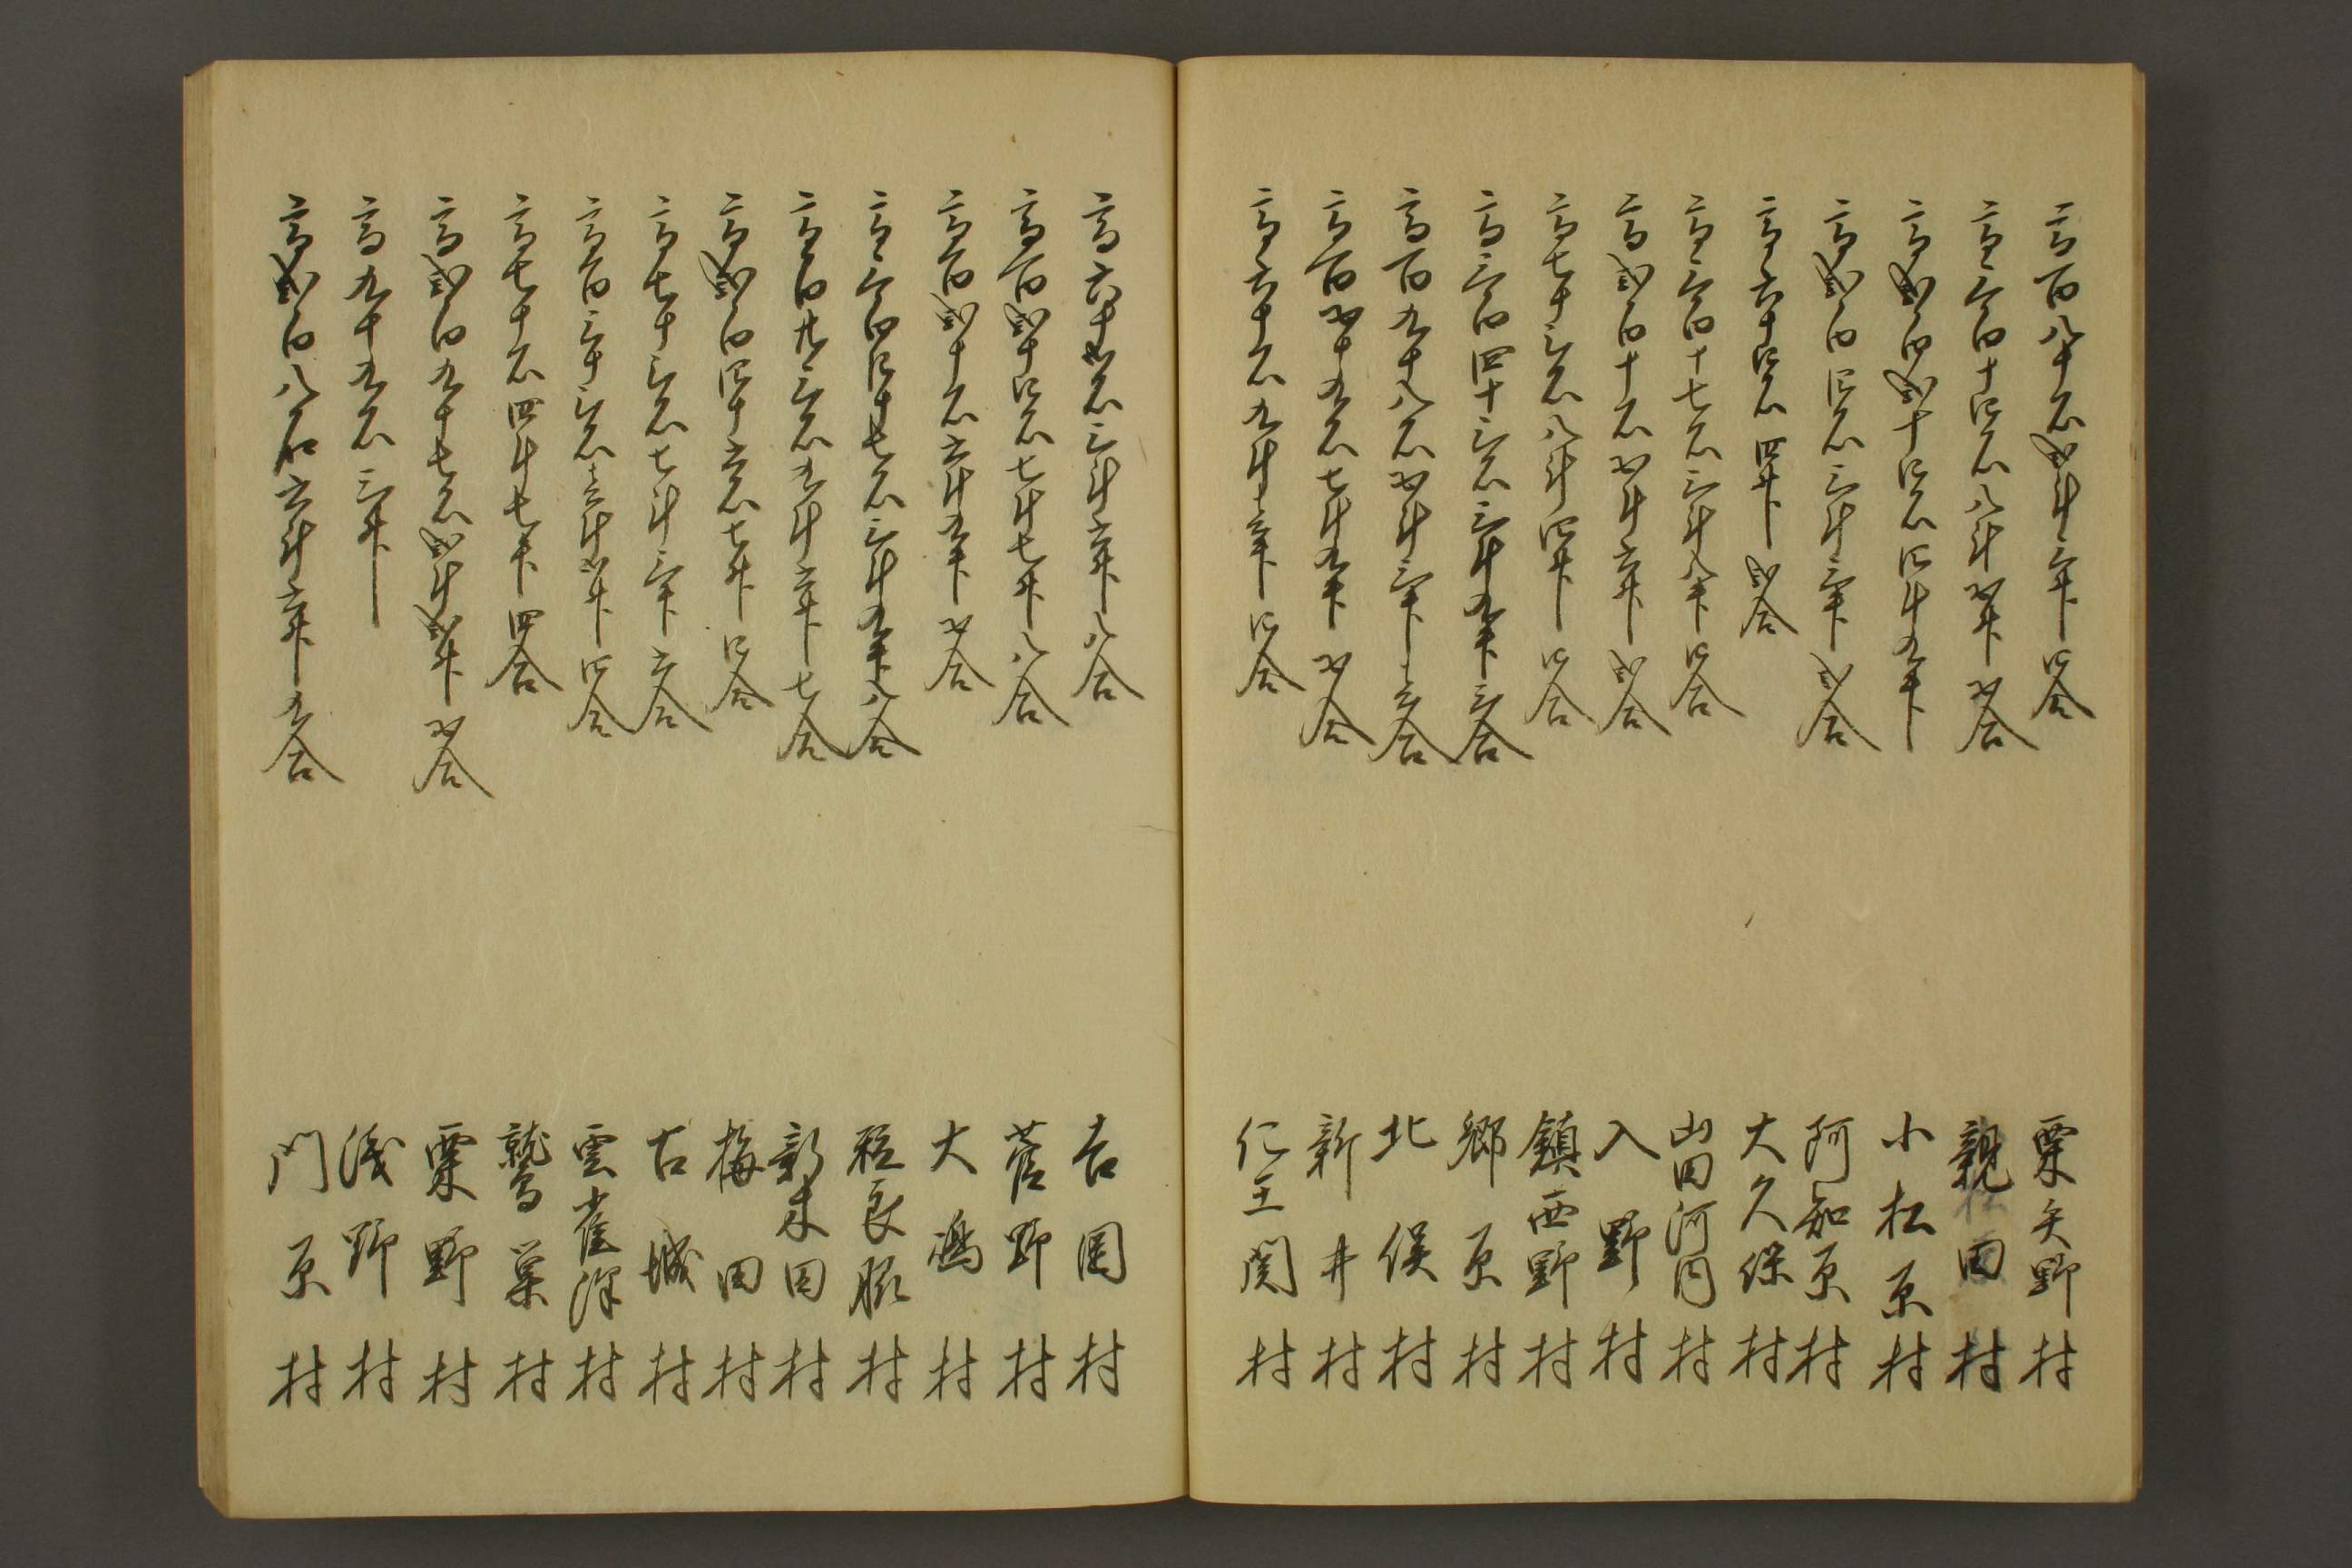 高百八十石弐斗三升四合 栗矢野村
高三百十四石八斗壱升壱合 親田村
高弐百弐十四石四斗九升 小松原村
高弐百四石三斗三升弐合 阿知原村
高六十四石四升弐合 大久保村
高三百十七石三斗八升四合 山田河内村
高弐百十石壱斗六升弐合 入野村
高七十三石八斗四升四合 鎮西野村
高三百四十三石三斗九升三合 郷原村
高百九十八石壱斗三升三合 北俣村
高百壱十九石七斗九升壱合 新井村
高六十石九斗三升四合 仁王関村
高六十壱石三斗六升八合 吉岡村
高百弐十四石七斗七升八合 菅野村
高百弐十石六斗九升壱合 大嶋村
高三百四十七石三斗九升八合 粒良脇村
高百廿三石九斗六升七合 彰木田村
高弐百四十六石七升四合 梅田村
高七十三石七斗三升六合 古城村
高百三十三石三斗壱升四合 雲雀沢村
高七十石四斗七升四合 鷲巣村
高弐百九十七石弐斗弐升壱合 栗野村
高九十九石三升 浅野村
高弐百八石六斗六升九合 門原村